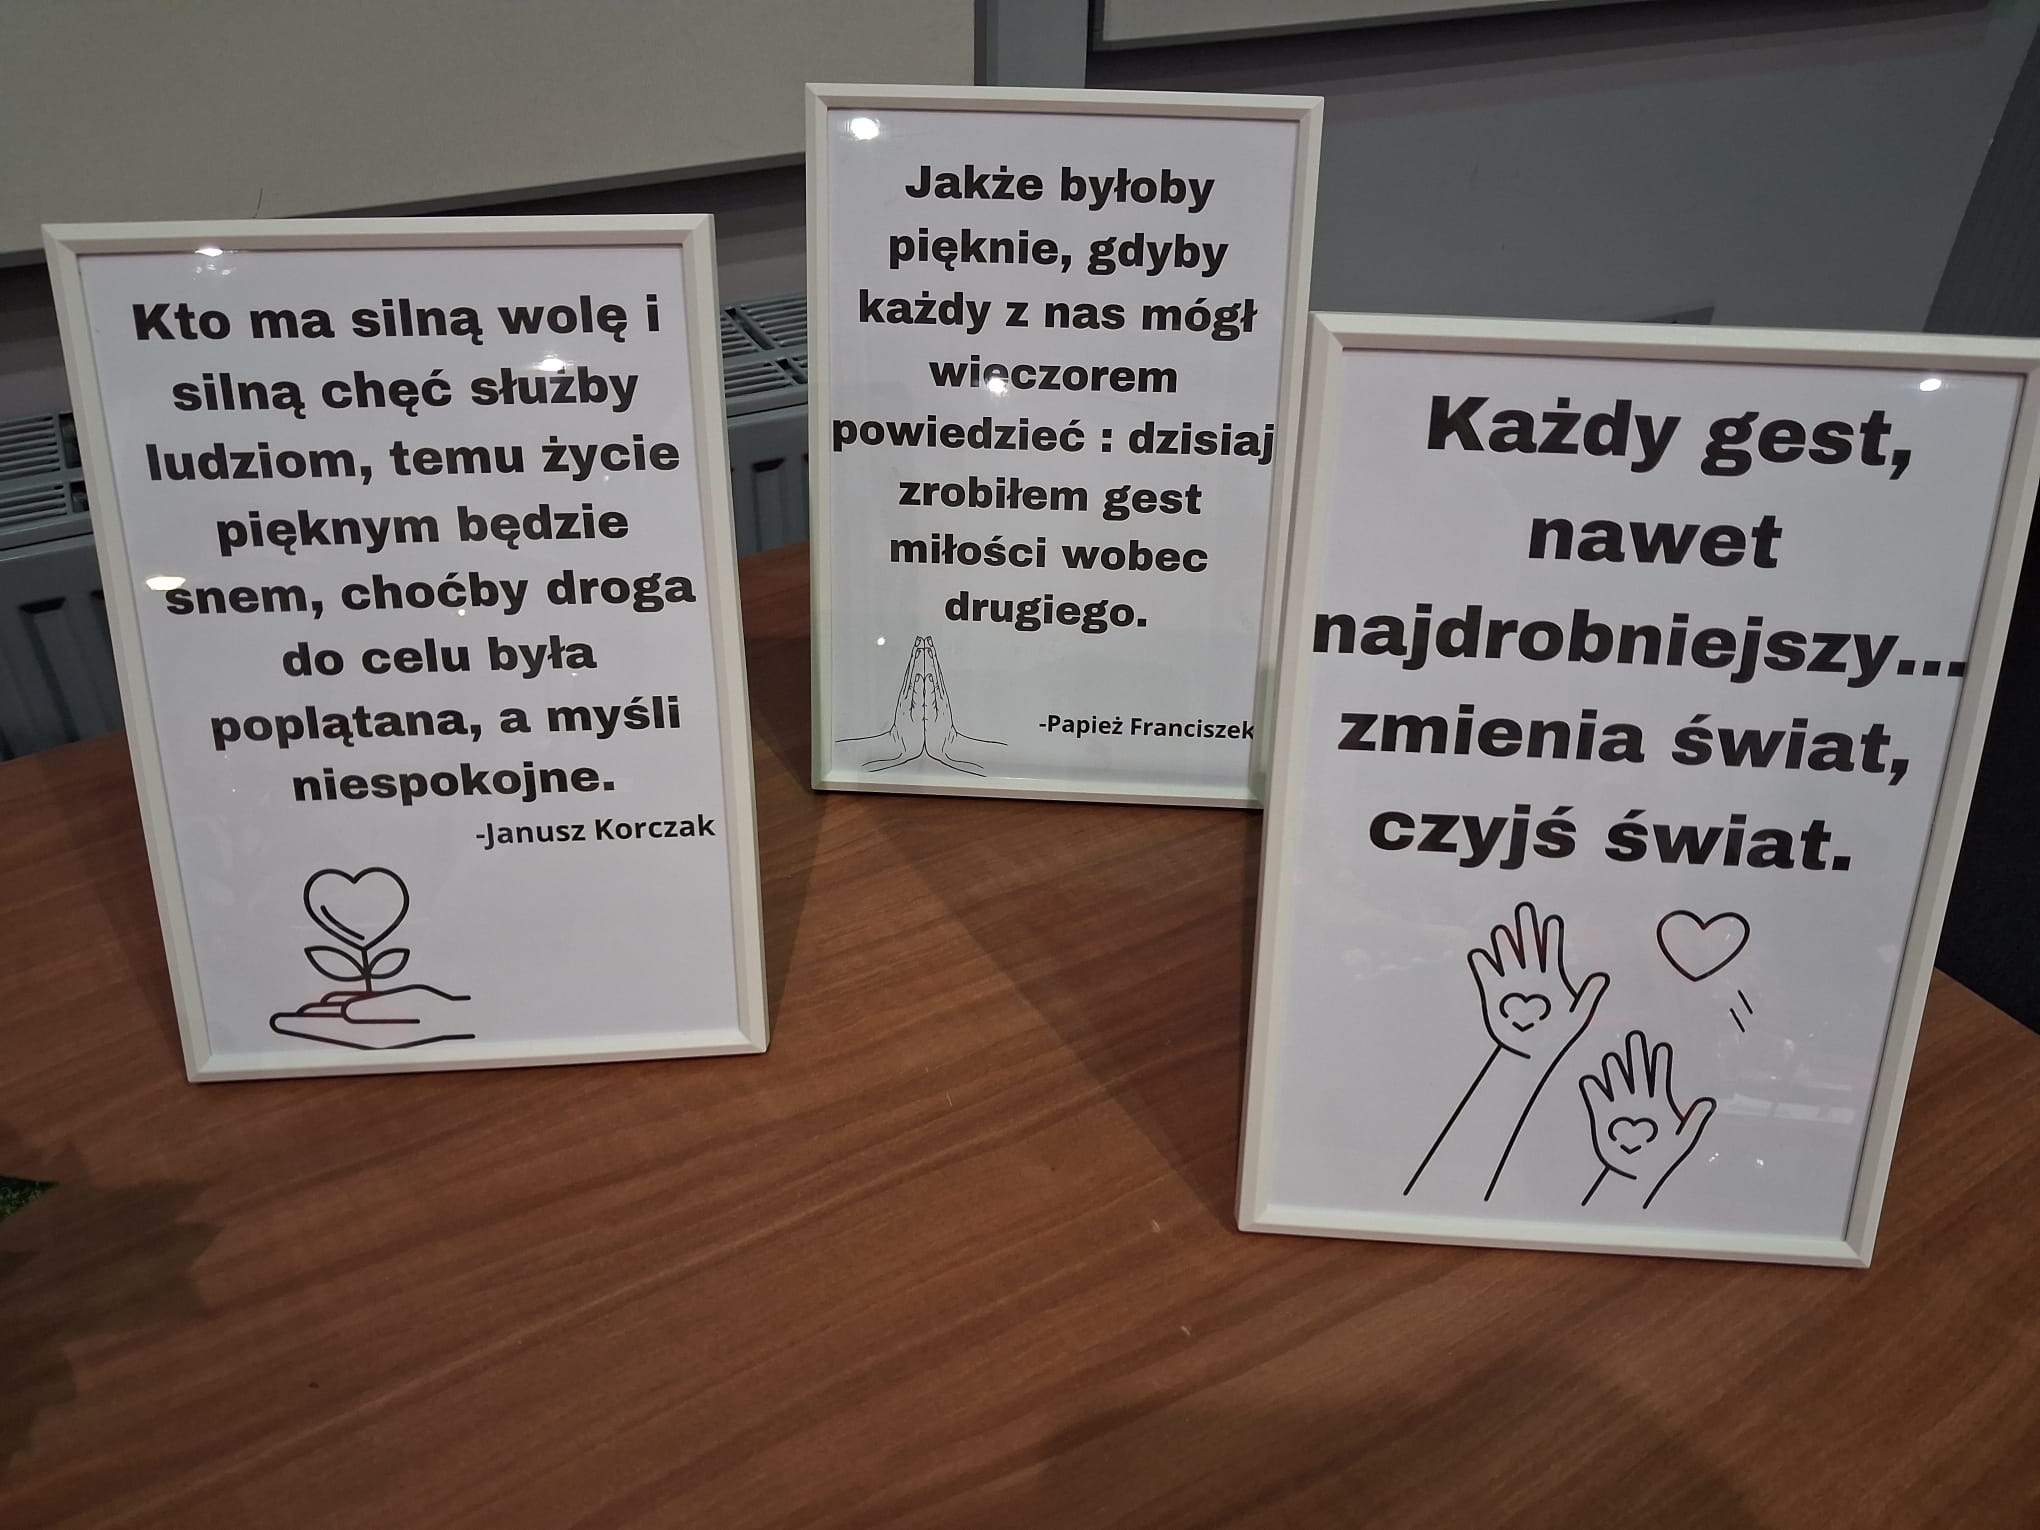 Kto ma silną wolę i
silną chęć służby
ludziom, temu życie
pięknym będzie
snem, choćby droga
do celu była
poplątana, a myśli
niespokojne.
-Janusz Korczak
Jakże byłoby
pięknie, gdyby
każdy z nas mógł
wieczorem
powiedzieć : dzisiaj
zrobiłem gest
miłości wobec
drugiego.
-Papież Franciszek
Każdy gest,
nawet
najdrobniejszy...
zmienia świat,
czyjś świat.